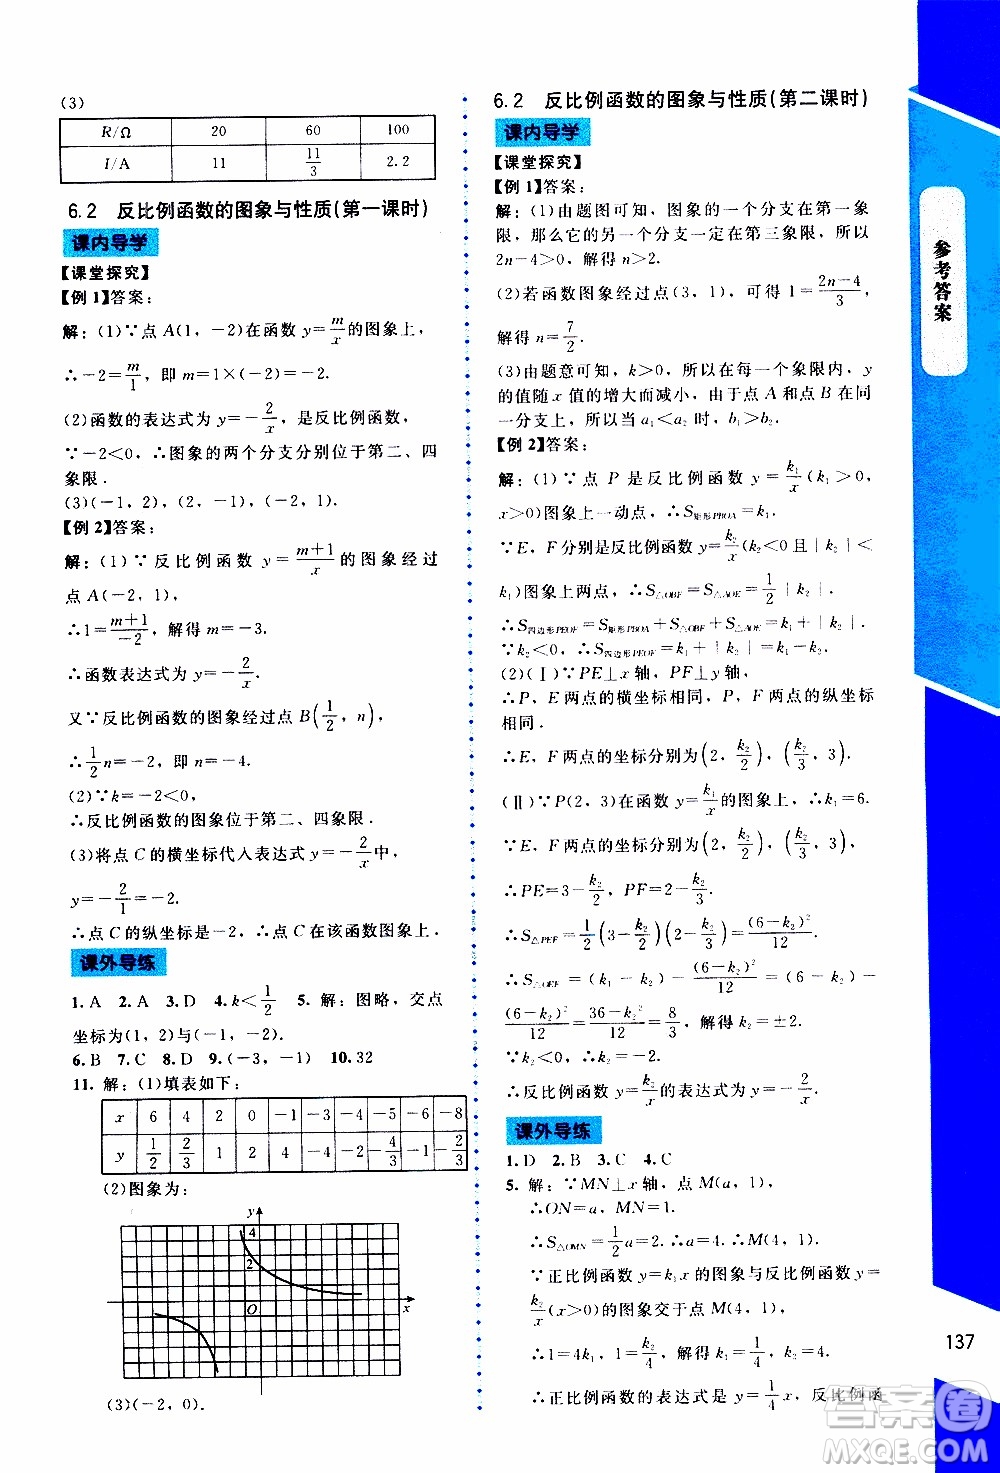 (3)
R/Ω 20 60 100
I/A 11 11/3 2.2
6.2 反比例函数的图象与性质(第一课时)
课内导学
【课堂探究】
【例 1】答案:
解:(1)∵点 A(1,-2)在函数 y=m/x的图象上,
∴-2=m/1,即 m=1×(-2)=-2.
(2)函数的表达式为 y=-2/x,是反比例函数,
∵-2<0,∴图象的两个分支分别位于第二、四
象限.
(3)(-1,2),(2,-1)两点在图象上.
【例 2】答案:
解:(1)∵反比例函数 y=(m+1)/x 的图象经过
点 A(-2,1),
∴1=(m+1)/-2,解得 m=-3.
∴函数表达式为 y=-2/x.
又∵反比例函数的图象经过点 B(1/2,n),
∴1/2 n=-2,即 n=-4.
(2)∵k=-2<0,
∴反比例函数的图象位于第二、四象限.
(3)将点 C 的横坐标代入表达式 y=-2/x中,
y=-2/1=-2.
∴点 C 的纵坐标是-2,∴点 C 在该函数图象上.
课外导练
1. A 2. A 3. D 4. k<1/2 5. 解:图略,交点
坐标为(1,2)与(-1,-2).
6. B 7. C 8. D 9. (-3,-1) 10. 32
11. 解:(1)填表如下:
x 6 4 2 0 -1 -3 -4 -6 -8
y 1/2 2/3 1 2 4 -4 -2 -4/3 -2/3
(2)图象为:
y
4
2
O
x
(3)(-2,0).
6.2 反比例函数的图象与性质(第二课时)
课内导学
【课堂探究】
【例 1】答案:
解:(1)由题图可知,图象的一个分支在第一象
限,那么它的另一个分支一定在第三象限,所以
2n-4>0,解得 n>2.
(2)若函数图象经过点(3,1),可得 1=(2n-4)/3,
解得 n=7/2.
(3)由题意可知,k>0,所以在每一个象限内,y
的值随 x 值的增大而减小,由于点 A 和点 B 在同
一分支上,所以当 a₁<a₂时,b₁>b₂.
【例 2】答案:
解:(1)∵点 P 是反比例函数 y=k₁/x(k₁>0,
x>0)图象上一动点,∴S矩形PBOA=k₁.
∵E、F分别是反比例函数 y=k₂/x(k₂<0且|k₂|<
k₁)图象上两点,∴S△OBF=S△AOE=1/2|k₂|,
∴S四边形PEOF=S矩形PBOA+S△OBF+S△AOE=k₁+|k₂|.
∵k₂<0,∴S四边形PEOF=k₁-k₂.
(2)(Ⅰ)∵PE⊥x 轴,PF⊥y 轴,
∴P、E 两点的横坐标相同,P、F 两点的纵坐标
相同.
∴E、F 两点的坐标分别为(2,k₂/2),(k₂/3,3).
(Ⅱ)∵P(2,3)在函数 y=k₁/x的图象上,∴k₁=6.
∵E、F 两点的坐标分别为(2,k₂/2),(k₂/3,3),
∴PE=3-k₂/2,PF=2-k₂/3,
∴S△PEF=1/2(3-k₂/2)(2-k₂/3)=(6-k₂)²/12,
∴S△OEF=(k₁-k₂)-(6-k₂)²/12=(6-k₂)-
(6-k₂)²/12=(36-k₂²)/12=8/3,解得 k₂=±2.
∵k₂<0,∴k₂=-2.
∴反比例函数的表达式为 y=-2/x.
课外导练
1. D 2. B 3. C 4. C
5. 解:∵MN⊥x 轴,点 M(a,1),
∴ON=a,MN=1.
∴S△OMN=1/2 a=2,∴a=4,∴M(4,1).
∵正比例函数 y=k₁x的图象与反比例函数 y=
k₂/x(x>0)的图象交于点 M(4,1),
∴1=4k₁,1=k₂/4,∴k₁=1/4,k₂=4.
∴正比例函数的表达式是 y=1/4 x,反比例函
参考答案
137
答案圈
MXQE.COM